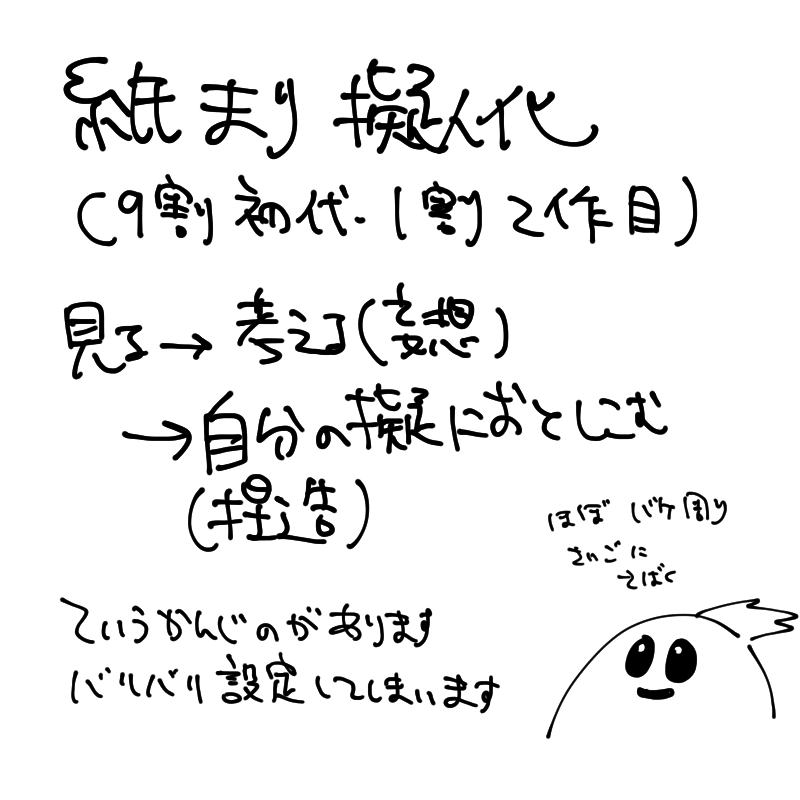 紙まり 擬人化
(9割初代・1割2作目)
見る→考える(妄想)
→自分の擬におとしこむ
(捏造)
ていうかんじのがあります
バリバリ設定してしまいます
ほぼ バケ周り
さいごに
そばく